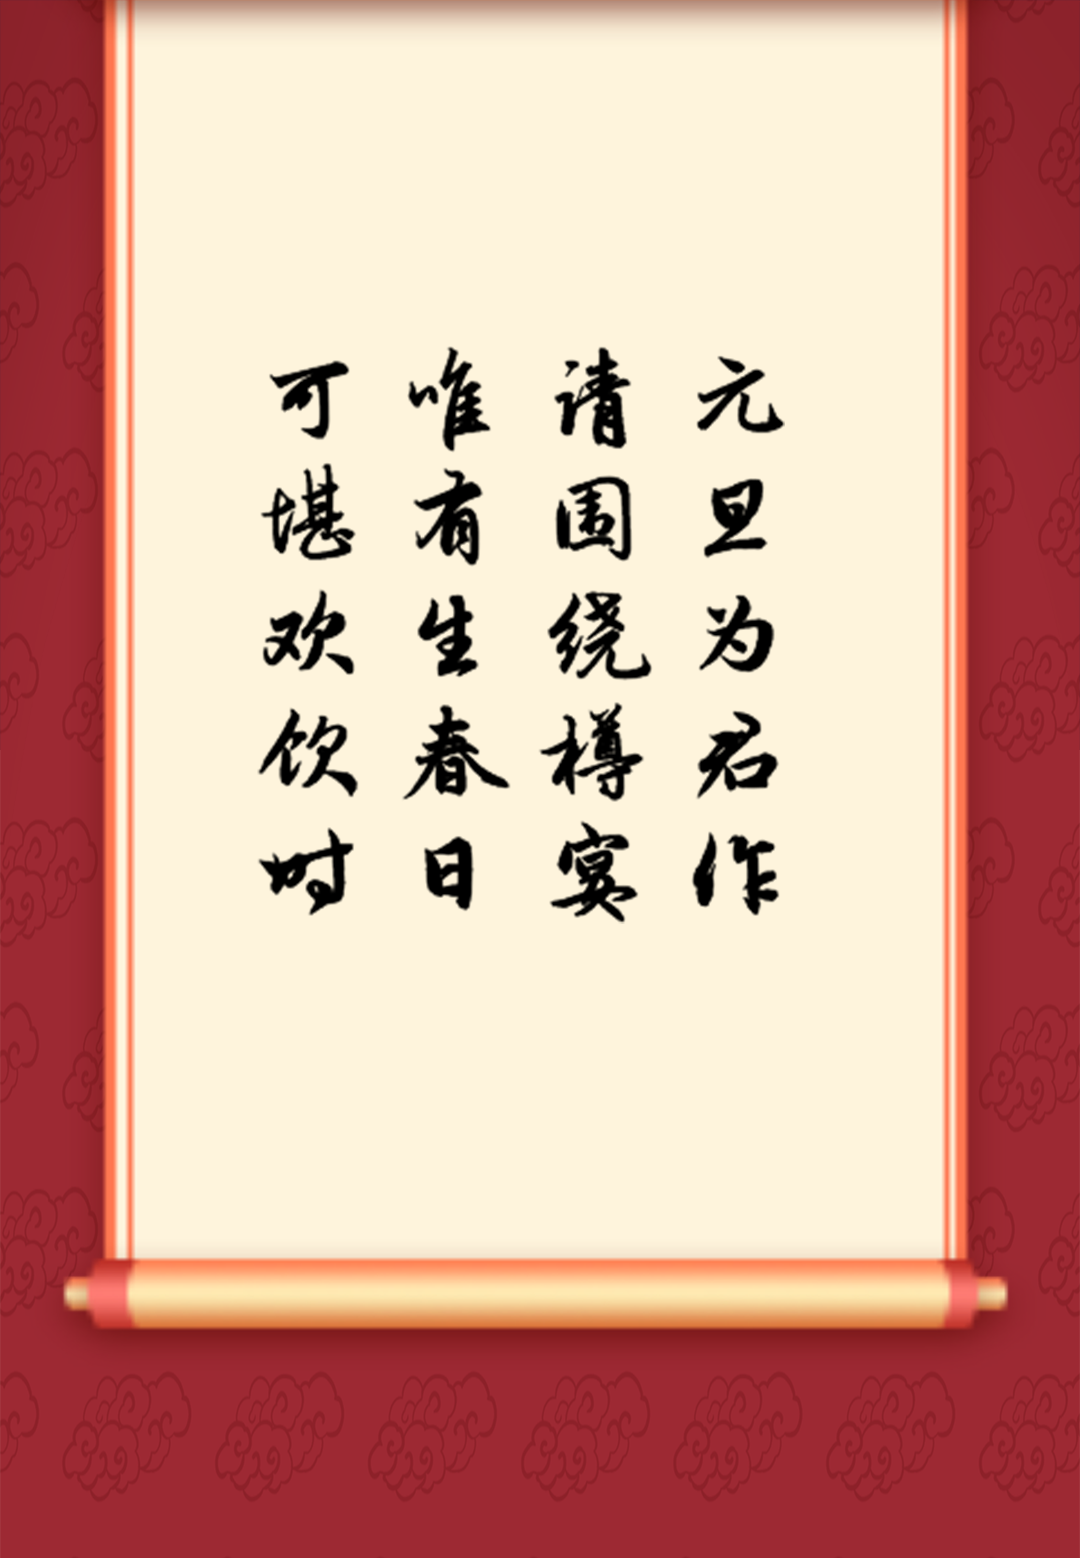 元旦为君作
请围绕樽宴
唯有生春日
可堪欢饮时